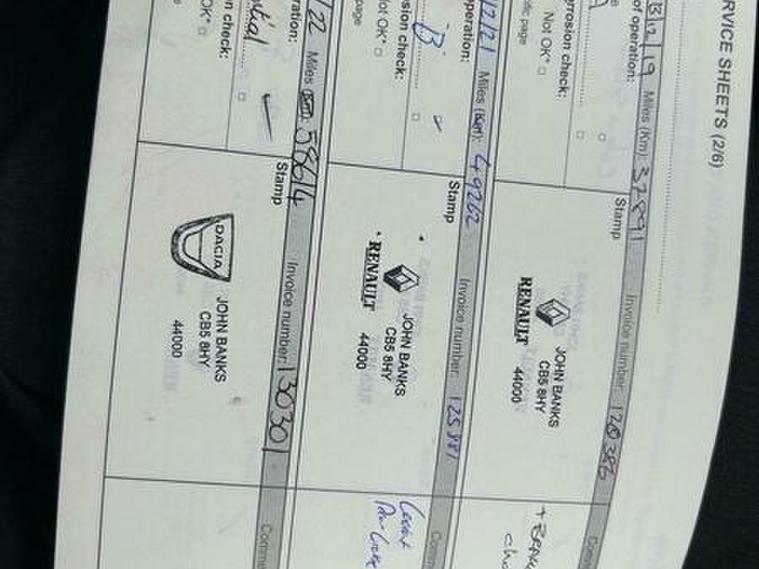 RVICE SHEETS (2/6)
13/12/19 Miles (Km): 37891 Invoice number: 120386
of operation: Stamp Comm
rrosion check:
Not OK*
page
JOHN BANKS
CB5 8HY
RENAULT 44000
/12/21 Miles (Km): 49262 Invoice number: 125881
operation: Stamp Comm
B
sion check:
Not OK*
page
JOHN BANKS
CB5 8HY
RENAULT 44000
/22 Miles (Km): 58614 Invoice number: 130301
ration: Stamp Comme
on check:
OK*
DACIA
JOHN BANKS
CB5 8HY
44000